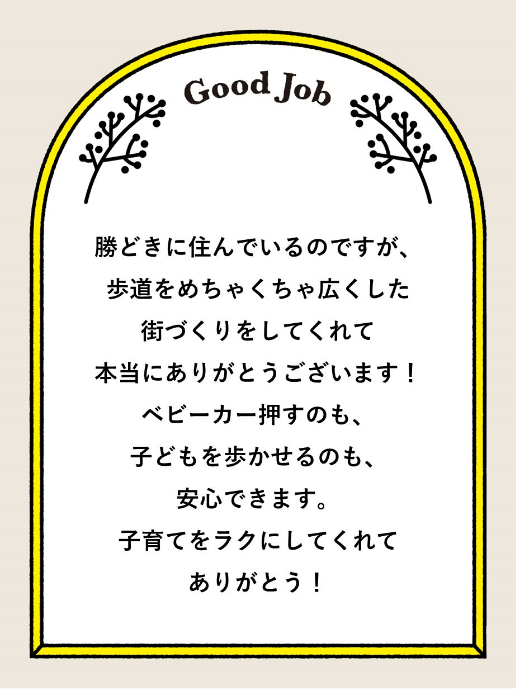 Good Job
勝どきに住んでいるのですが、
歩道をめちゃくちゃ広くした
街づくりをしてくれて
本当にありがとうございます！
ベビーカー押すのも、
子どもを歩かせるのも、
安心できます。
子育てをラクにしてくれて
ありがとう！